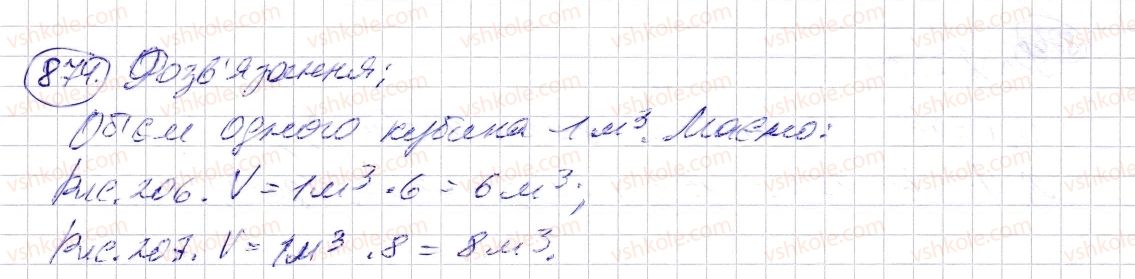 874. Розв'язання;
Об'єм одного кубика 1 м³. Маємо:
Рис. 206. V = 1 м³ · 6 = 6 м³;
Рис. 207. V = 1 м³ · 8 = 8 м³.